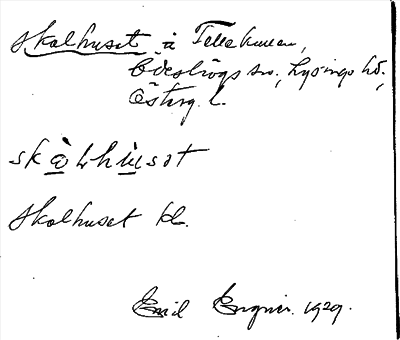 Skalhuset å Tellekullen,
Ödeshögs sn., Lysings hd.,
Österg. l.
skɷ̀ɫhùsət
Skalhuset kl.
Emil Engner. 1929.